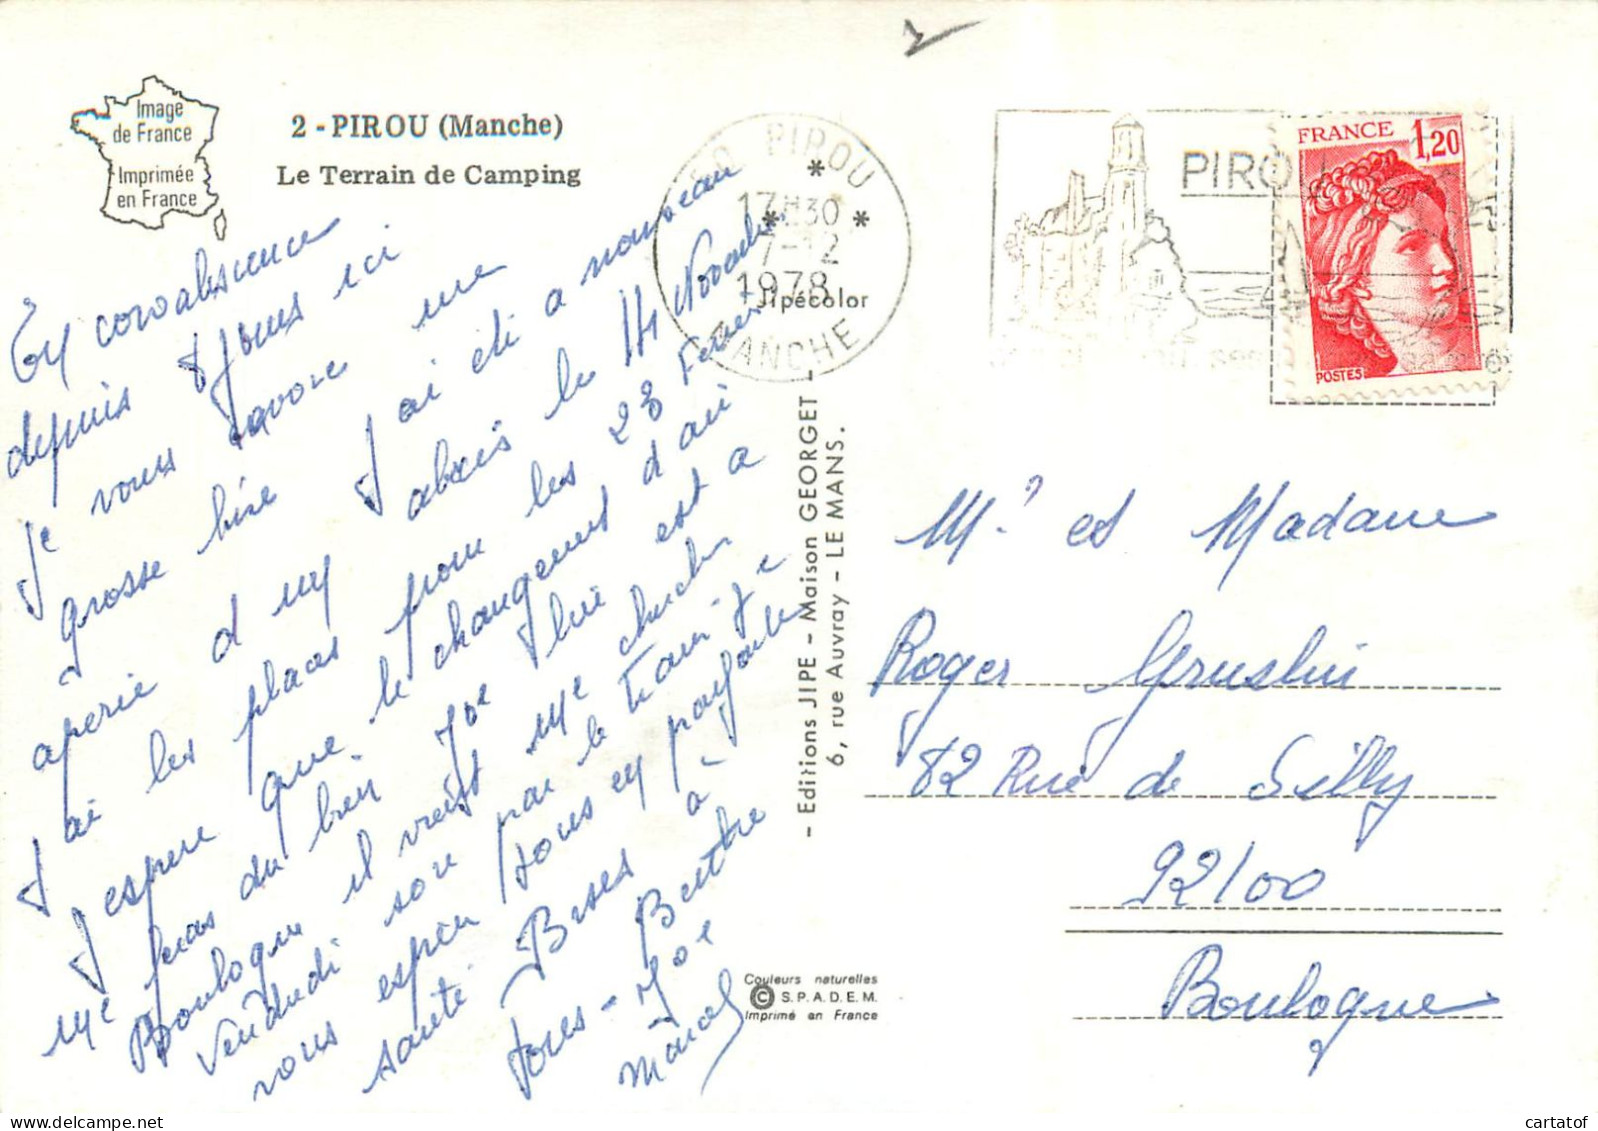 Image
de France
Imprimée
en France
2 - PIROU (Manche)
Le Terrain de Camping
En convalescence
depuis 8 jours ici
Je vous envoie une
grosse bise J'ai été a nouveau
opérée d un abcès le 14 Novembre
J ai les places pour les 23 Février
J espère que le changement d air
me feras du bien Joe lui est a
Boulogne il vient me chercher
Vendredi soir par le train je
vous espère tous en parfaite
santé Bises à
tous - Berthe
Joe
Marcel
50 PIROU
17H30
7-12
1978
MANCHE
PIROU
FRANCE 1,20
POSTES
Jipécolor
- Editions JIPE - Maison GEORGET -
6, rue Auvray - LE MANS.
Mr et Madame
Roger
82 Rue de Silly
92100
Boulogne
Couleurs naturelles
© S.P.A.D.E.M.
Imprimé en France
cartatof